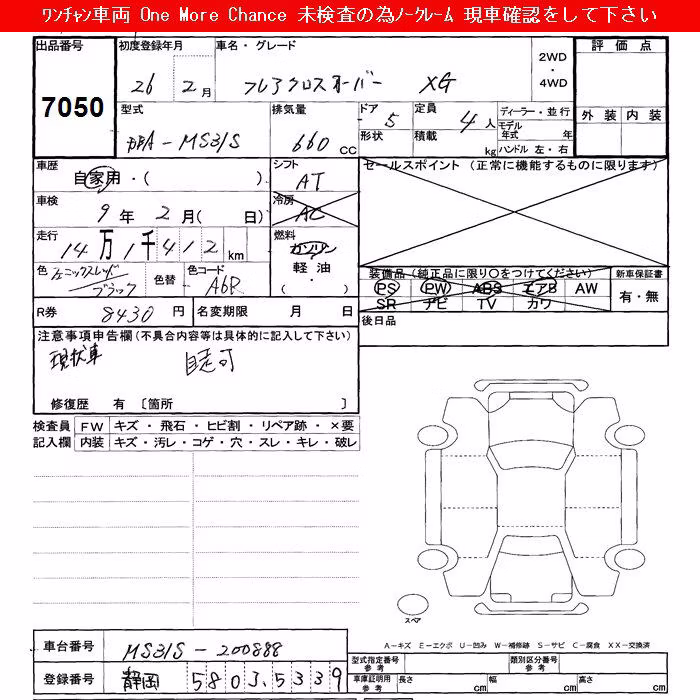 ﾜﾝﾁｬﾝ車両 One More Chance 未検査の為ﾉｰｸﾚｰﾑ 現車確認をして下さい
出品番号 初度登録年月 車名・グレード 評価点
7050 26年 2月 フレアクロスオーバー XG 2WD・4WD
型式 排気量 ドア 定員 ディーラー・並行 外装 内装
DBA-MS31S 660 CC 5 4人 モデル年式 年
形状 積載 kg ハンドル 左・右
車歴 シフト セールスポイント (正常に機能するものに限ります)
自家用・( ) AT
車検 冷房
9年 2月( 日) AC
走行 燃料
14万1千412km ガソリン・軽油・( )
色 色替 色コード 装備品(純正品に限り○をつけてください) 新車保証書
フェニックスレッド ブラック A6R PS PW ABS エアB AW 有・無
SR ナビ TV カワ
R券 8430円 名変期限 月 日 後日品
注意事項申告欄(不具合内容等は具体的に記入して下さい)
現状車 自走可
修復歴 有 〔箇所 〕
検査員 FW キズ・飛石・ヒビ割・リペア跡・×要
記入欄 内装 キズ・汚レ・コゲ・穴・スレ・キレ・破レ
スペア
A－キズ E－エクボ U－凹み W－補修跡 S－サビ C－腐食 XX－交換済
車台番号 MS31S-200888 型式指定番号 参考 類別区分番号 参考
登録番号 静岡 580 35339 車庫証明用 参考 長さ cm 幅 cm 高さ cm